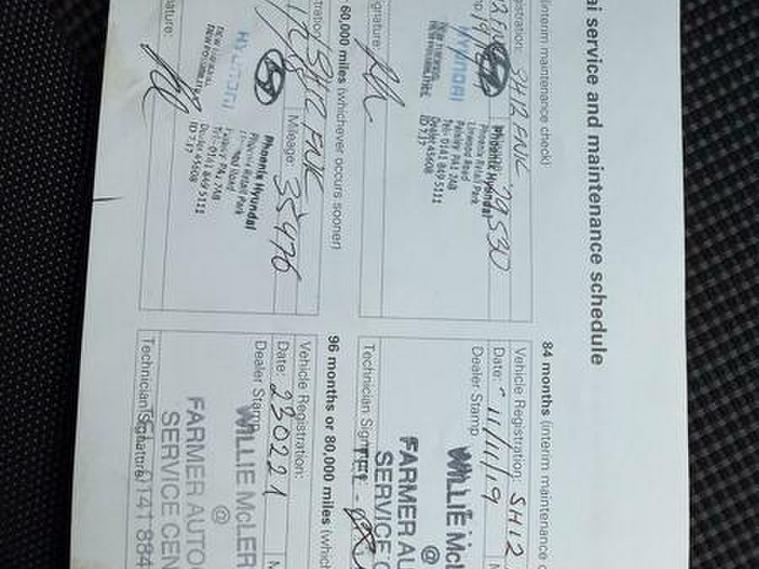 ai service and maintenance schedule
(interim maintenance check)
gistration: SH12 FNK
29530
HYUNDAI
NEW THINKING.
NEW POSSIBILITIES.
Phoenix Hyundai
Phoenix Retail Park
Linwood Road
Paisley PA1 2AB
Tel: 0141 849 5111
Dealer 45608
ID 737
gnature:
60,000 miles (whichever occurs sooner)
stration: SH12 FNK
Mileage: 35476
HYUNDAI
NEW THINKING.
NEW POSSIBILITIES.
Phoenix Hyundai
Phoenix Retail Park
Linwood Road
Paisley PA1 2AB
Tel: 0141 849 5111
Dealer 45608
ID 737
nature:
84 months (interim maintenance c
Vehicle Registration: SH12
Date: 11/11/19
Dealer Stamp
WILLIE McL
@
FARMER AU
SERVICE C
TEL -
Technician Signature
96 months or 80,000 miles (which
Vehicle Registration:
Date: 230221
Dealer Stamp
WILLIE McLER
@
FARMER AUTO
SERVICE CEN
TEL 0141 884
Technician Signature